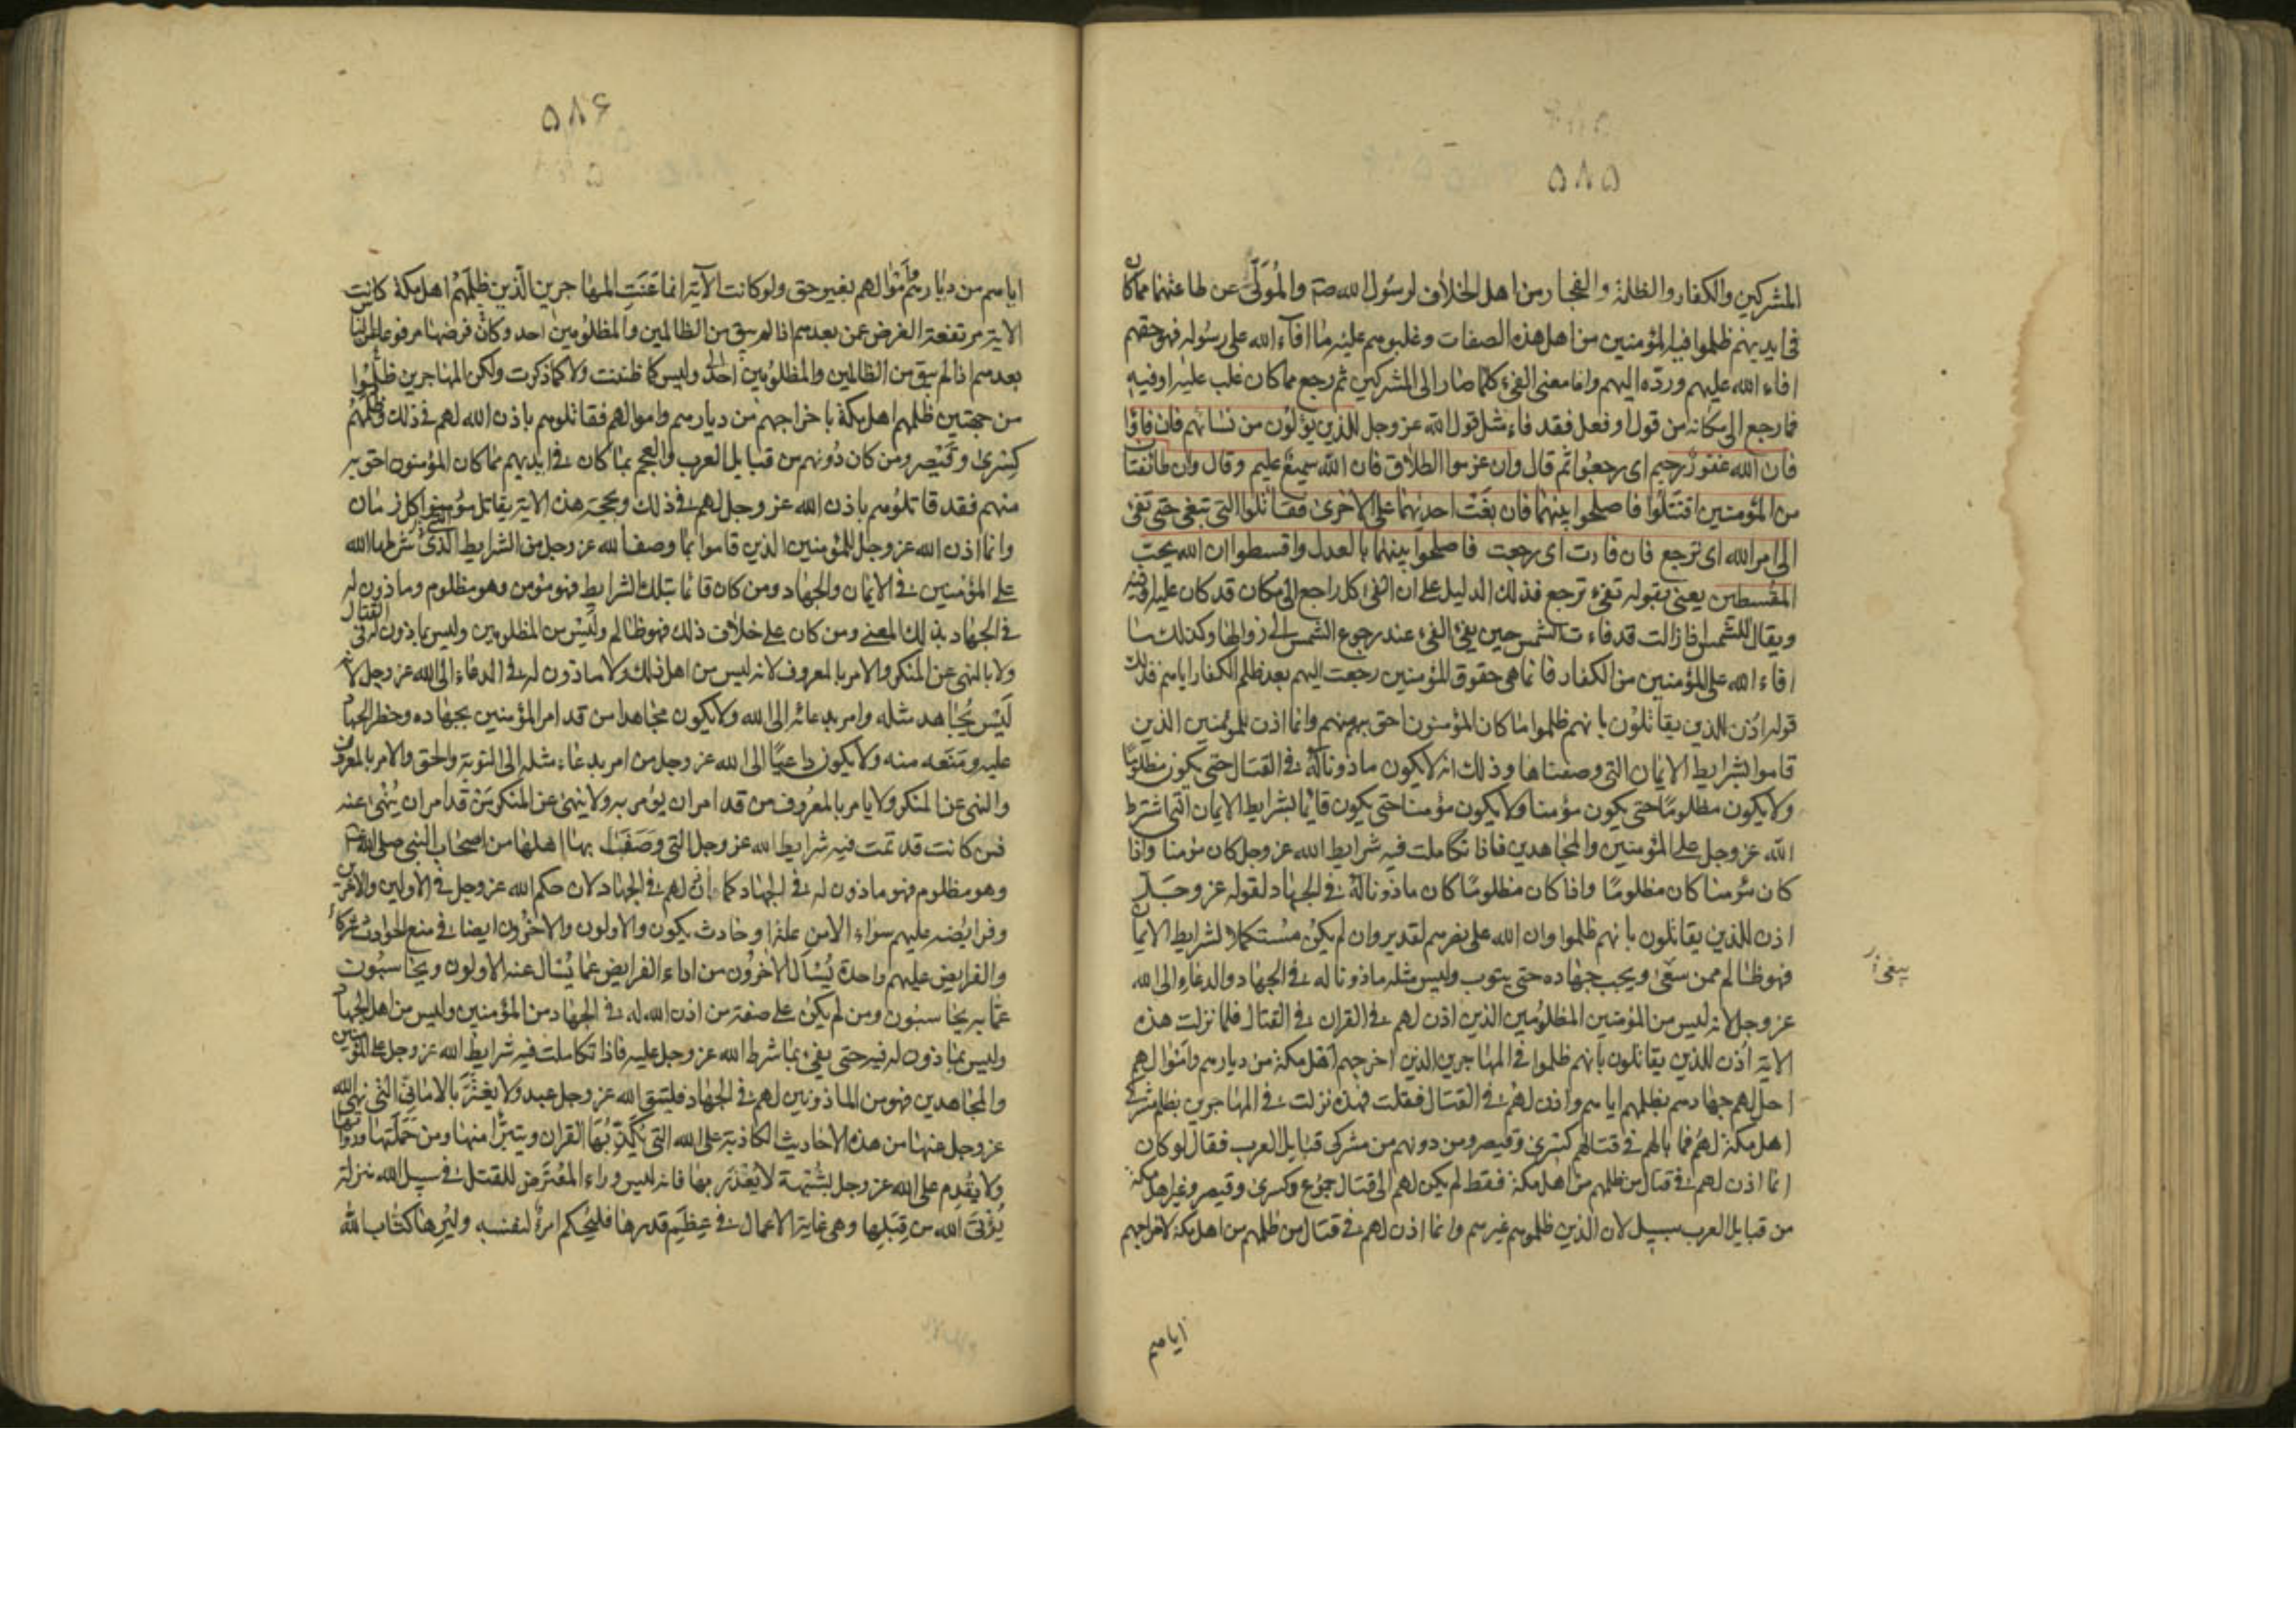 ۵۸۵
المشركين والكفار والظلمة والفجار من اهل الخلاف لرسول الله صة والمُوَلّى عن طاعتهما مما كان
فى ايديهم ظلموا فيه المؤمنين من اهل هذه الصفات وغلبوهم عليه مما افاء الله على رسوله فهو حقهم
افاء الله عليهم وردّه اليهم وانما معنى الفئ كلما صار الى المشركين ثم رجع مما كان غلب عليه او فيه
فما رجع الى مكانه من قول او فعل فقد فاء مثل قول الله عز وجل للذين يؤلون من نسائهم فان فاؤا
فان الله غفور رحيم اى رجعوا ثم قال وان عزموا الطلاق فان الله سميع عليم وقال وان طائفتان
من المؤمنين اقتتلوا فاصلحوا بينهما فان بغت احديهما على الاخرى فقاتلوا التى تبغى حتى تفئ
الى امر الله اى ترجع فان فاءت اى رجعت فاصلحوا بينهما بالعدل واقسطوا ان الله يحب
المقسطين يعنى بقوله تفئ ترجع فذلك الدليل على ان الفئ كل راجع الى مكان قد كان عليه او فيه
ويقال للشمس اذا زالت قد فاءت الشمس حين يفئ الفئ عند رجوع الشمس الى زوالها وكذلك ما
افاء الله على المؤمنين من الكفار فانما هى حقوق المؤمنين رجعت اليهم بعد ظلم الكفار اياهم فذلك
قوله اذن للذين يقاتلون بانهم ظلموا ما كان المؤمنون احق به منهم وانما اذن للمؤمنين الذين
قاموا بشرايط الايمان التى وصفناها وذلك انه لا يكون ماذونا له فى القتال حتى يكون مظلوما
ولا يكون مظلوما حتى يكون مؤمنا ولا يكون مؤمنا حتى يكون قائما بشرايط الايمان التى اشترط
الله عز وجل على المؤمنين والمجاهدين فاذا تكاملت فيه شرايط الله عز وجل كان مؤمنا واذا
كان مؤمنا كان مظلوما واذا كان مظلوما كان ماذونا له فى الجهاد لقوله عز وجل
اذن للذين يقاتلون بانهم ظلموا وان الله على نصرهم لقدير وان لم يكن مستكملا لشرايط الايمان
فهو ظالم ممن سعى ويجب جهاده حتى يتوب وليس مثله ماذونا له فى الجهاد والدعاء الى الله
عز وجل لانه ليس من المؤمنين المظلومين الذين اذن لهم فى القران فى القتال فلما نزلت هذه
الاية اذن للذين يقاتلون بانهم ظلموا فى المهاجرين الذين اخرجهم اهل مكة من ديارهم واموالهم
احل لهم جهادهم بظلمهم اياهم واذن لهم فى القتال فقلت فهذه نزلت فى المهاجرين بظلم مشركى
اهل مكة لهم فما بالهم فى قتالهم كسرى وقيصر ومن دونهم من مشركى قبايل العرب فقال لو كان
انما اذن لهم فى قتال من ظلمهم من اهل مكة فقط لم يكن لهم الى قتال جموع وكسرى وقيصر وغير اهل مكة
من قبايل العرب سبيل لان الذين ظلموهم غيرهم وانما اذن لهم فى قتال من ظلمهم من اهل مكة لاخراجهم
اياهم
۵۸۶
اياهم من ديارهم واموالهم بغير حق ولو كانت الآية انما عَنَت المهاجرين الذين ظلمهم اهل مكة كانت
الاية مرتفعة الفرض عن بعدهم اذا لم يبق من الظالمين والمظلومين احد وكان فرضها مرفوعا عن الناس
بعدهم اذا لم يبق من الظالمين والمظلومين احد وليس كما ظننت ولا كما ذكرت ولكن المهاجرين ظلموا
من جهتين ظلمهم اهل مكة باخراجهم من ديارهم واموالهم فقاتلوهم باذن الله لهم فى ذلك وظلمهم
كسرى وقيصر ومن كان دونهم من قبايل العرب والعجم بما كان فى ايديهم مما كان المؤمنون احق به
منهم فقد قاتلوهم باذن الله عز وجل لهم فى ذلك وبحجة هذه الاية يقاتل مؤمنوا كل زمان
وانما اذن الله عز وجل للمؤمنين الذين قاموا بما وصف الله عز وجل من الشرايط التى شرطها الله
على المؤمنين فى الايمان والجهاد ومن كان قائما بتلك الشرايط فهو مؤمن وهو مظلوم وماذون له
فى الجهاد بذلك المعنى ومن كان على خلاف ذلك فهو ظالم وليس من المظلومين وليس بماذون له فى القتال
ولا بالنهى عن المنكر والامر بالمعروف لانه ليس من اهل ذلك ولا ماذون له فى الدعاء الى الله عز وجل لانه
ليس يُجاهد مثله وامر بدعائه الى الله ولا يكون مجاهدا من قد امر المؤمنين بجهاده وحظر الجهاد
عليه ومَنَعه منه ولا يكون داعيا الى الله عز وجل من امر بدعاء مثله الى التوبة والحق والامر بالمعروف
والنهى عن المنكر ولا يامر بالمعروف من قد امر ان يؤمر به ولا ينهى عن المنكر من قد امر ان يُنهى عنه
فمن كانت قد تمت فيه شرايط الله عز وجل التى وصف بها اهلها من اصحاب النبى صلى الله
وهو مظلوم فهو ماذون له فى الجهاد كما اذن لهم فى الجهاد لان حكم الله عز وجل فى الاولين والاخرين
وفرايضه عليهم سواء الا من علة او حادث يكون والاولون والاخرون ايضا فى منع الحوادث شركاء
والفرايض عليهم واحدة يُسأل الاخرون من اداء الفرايض عما يُسال عنه الاولون ويحاسبون
عما به يحاسبون ومن لم يكن على صفة من اذن الله له فى الجهاد من المؤمنين وليس من اهل الجهاد
وليس بماذون له فيه حتى يفئ بما شرط الله عز وجل عليه فاذا تكاملت فيه شرايط الله عز وجل على المؤمنين
والمجاهدين فهو من الماذونين لهم فى الجهاد فليتق الله عز وجل عبد ولا يغترّ بالامانى التى نهى الله
عز وجل عنها من هذه الاحاديث الكاذبة على الله التى يكذّبها القران ويتبرّأ منها ومن حملتها ورواتها
ولا يقدِم على الله عز وجل بشبهة لا يُعذر بها فانه ليس وراء المعترض للقتل فى سبيل الله منزلة
يُؤتى الله من قِبَلِها وهى غاية الاعمال فى عِظَم قدرها فليحكم امرؤ لنفسه وليُرِها كتاب الله